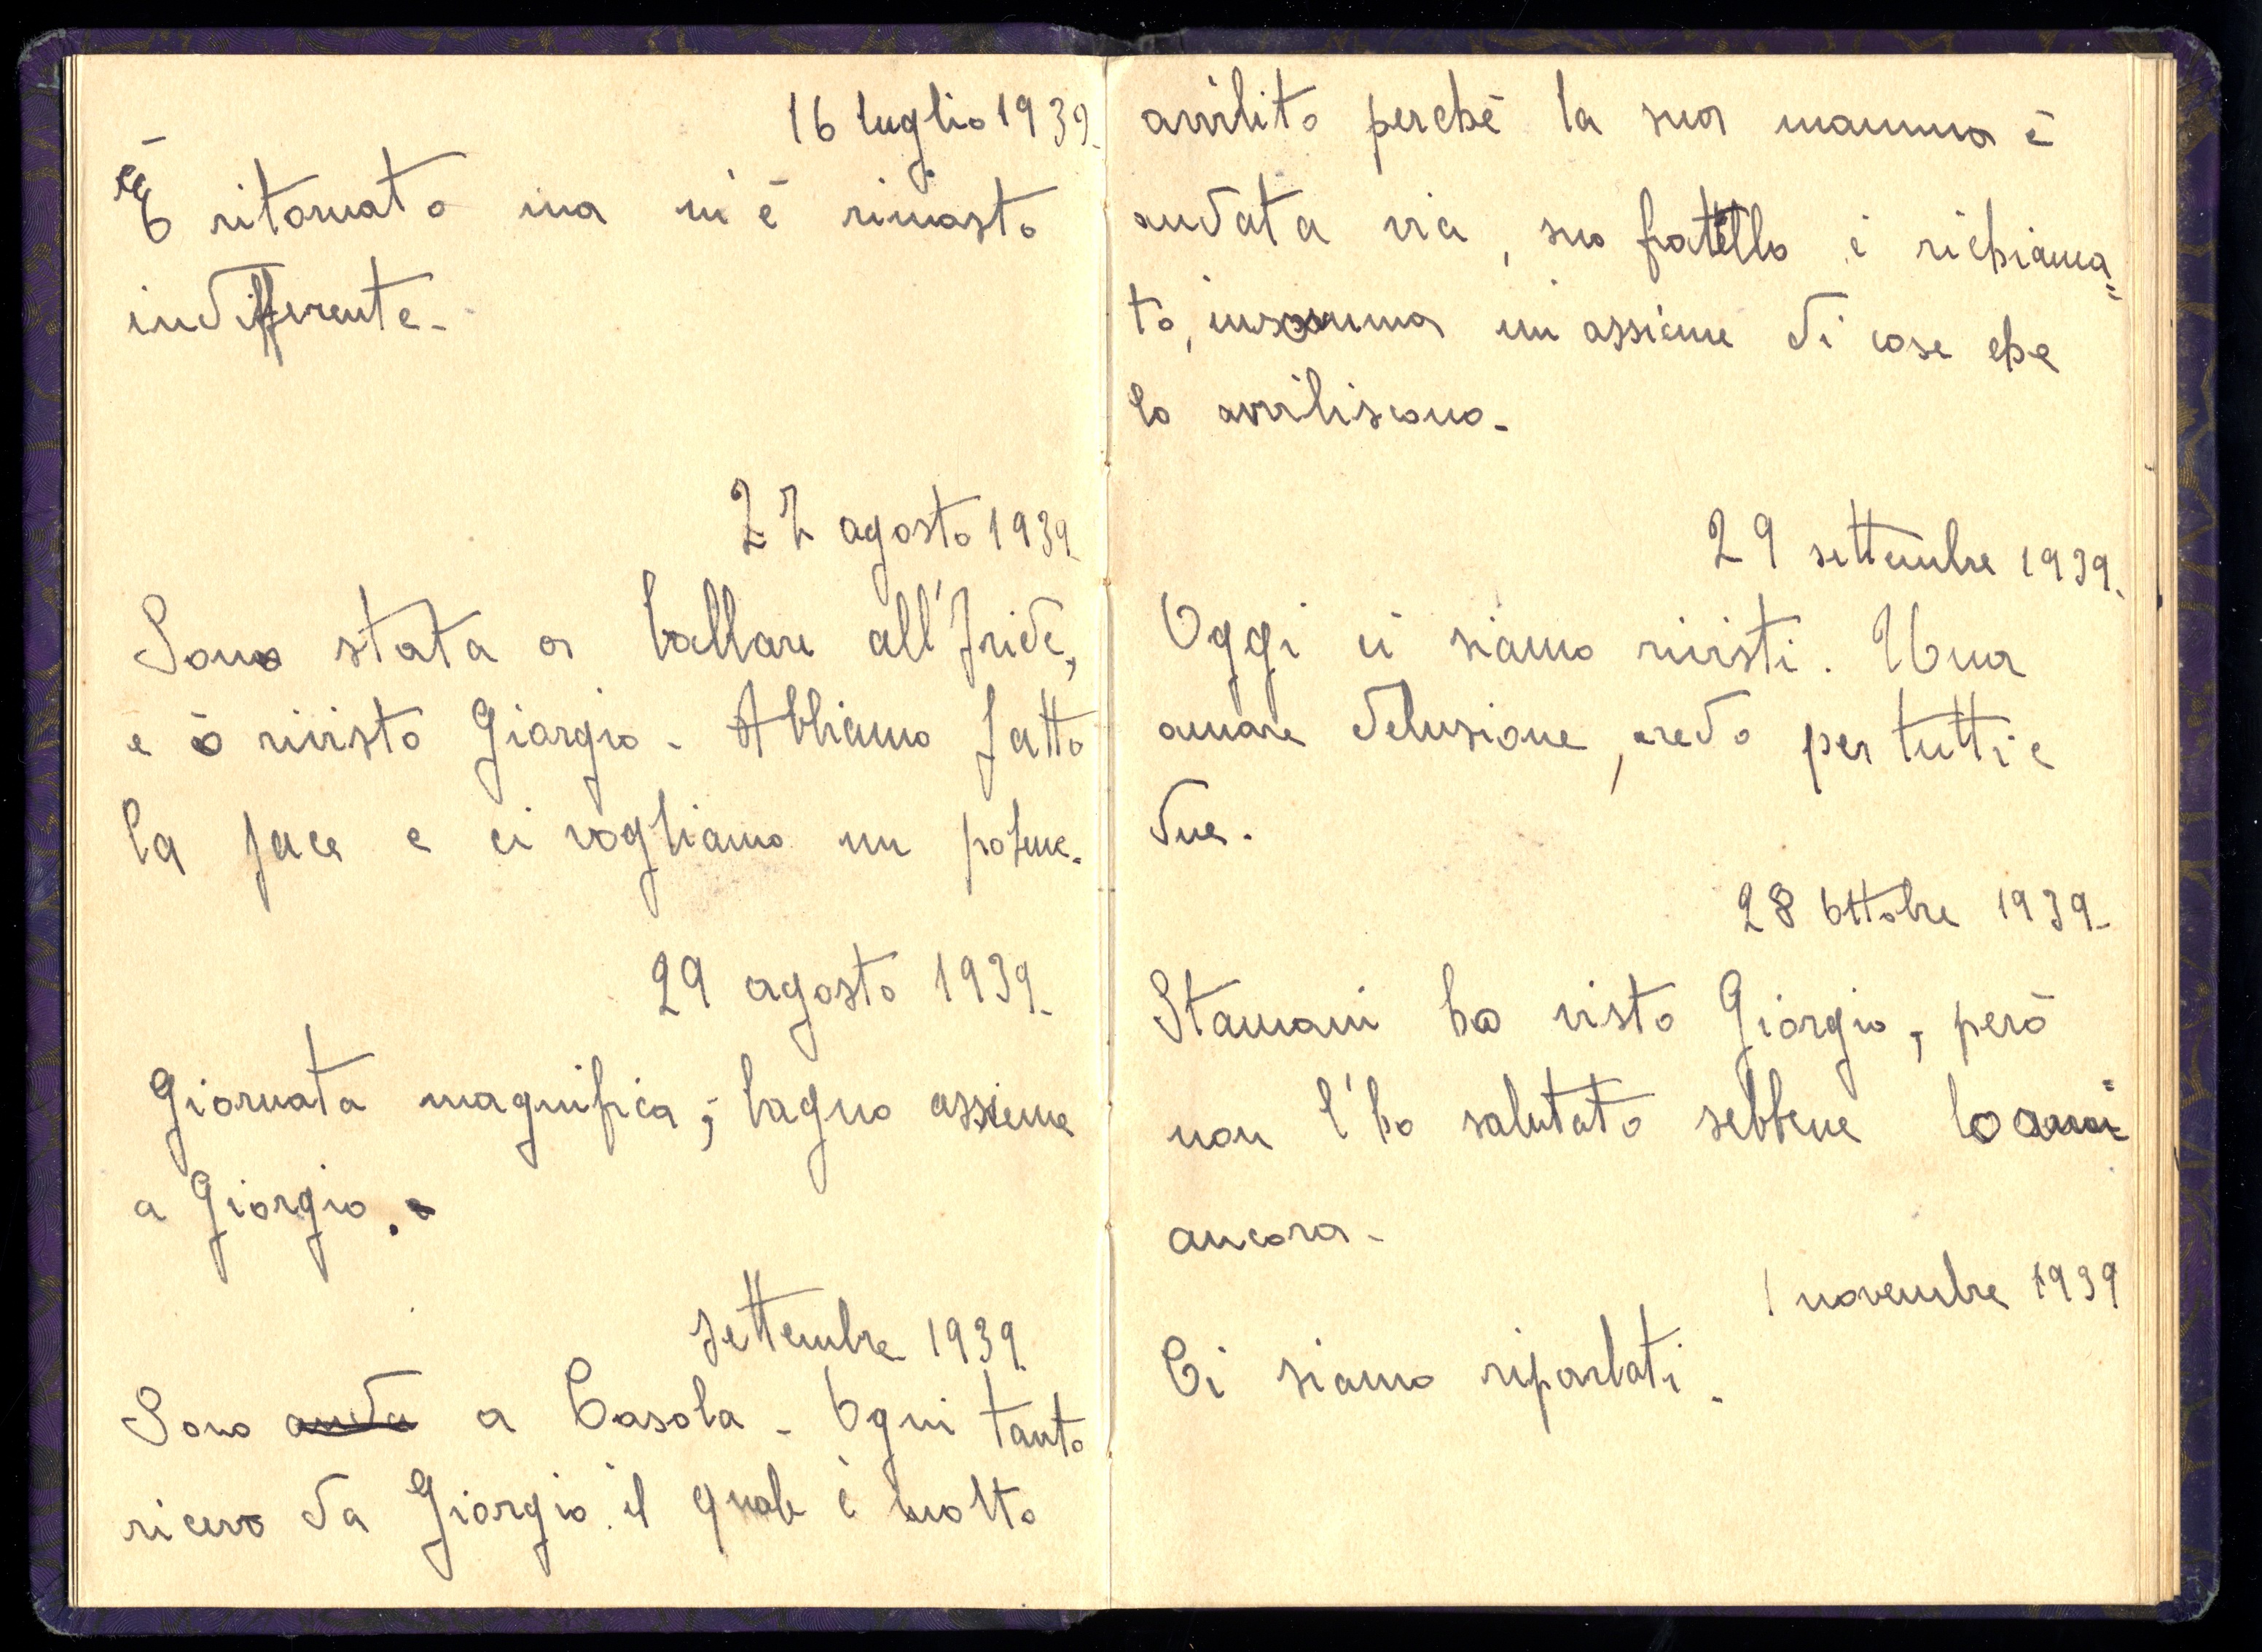 16 luglio 1939.
È ritornato ma m'è rimasto
indifferente.
22 agosto 1939
Sono stata a ballare all'Iride,
e ò rivisto Giorgio. Abbiamo fatto
la pace e ci vogliamo un pobene.
29 agosto 1939.
Giornata magnifica; bagno assieme
a Giorgio.
settembre 1939
Sono anda a Casola. Ogni tanto
ricevo da Giorgio il quale è molto
avvilito perchè la sua mamma è
andata via, suo fratello è richiama=
to, insomma un assieme di cose che
lo avviliscono.
29 settembre 1939.
Oggi ci siamo rivisti. Una
amare delusione, credo per tutti e
due.
28 ottobre 1939.
Stamani ho visto Giorgio, però
non l'ho salutato sebbene lo ami
ancora.
1 novembre 1939
Ci siamo riparlati.